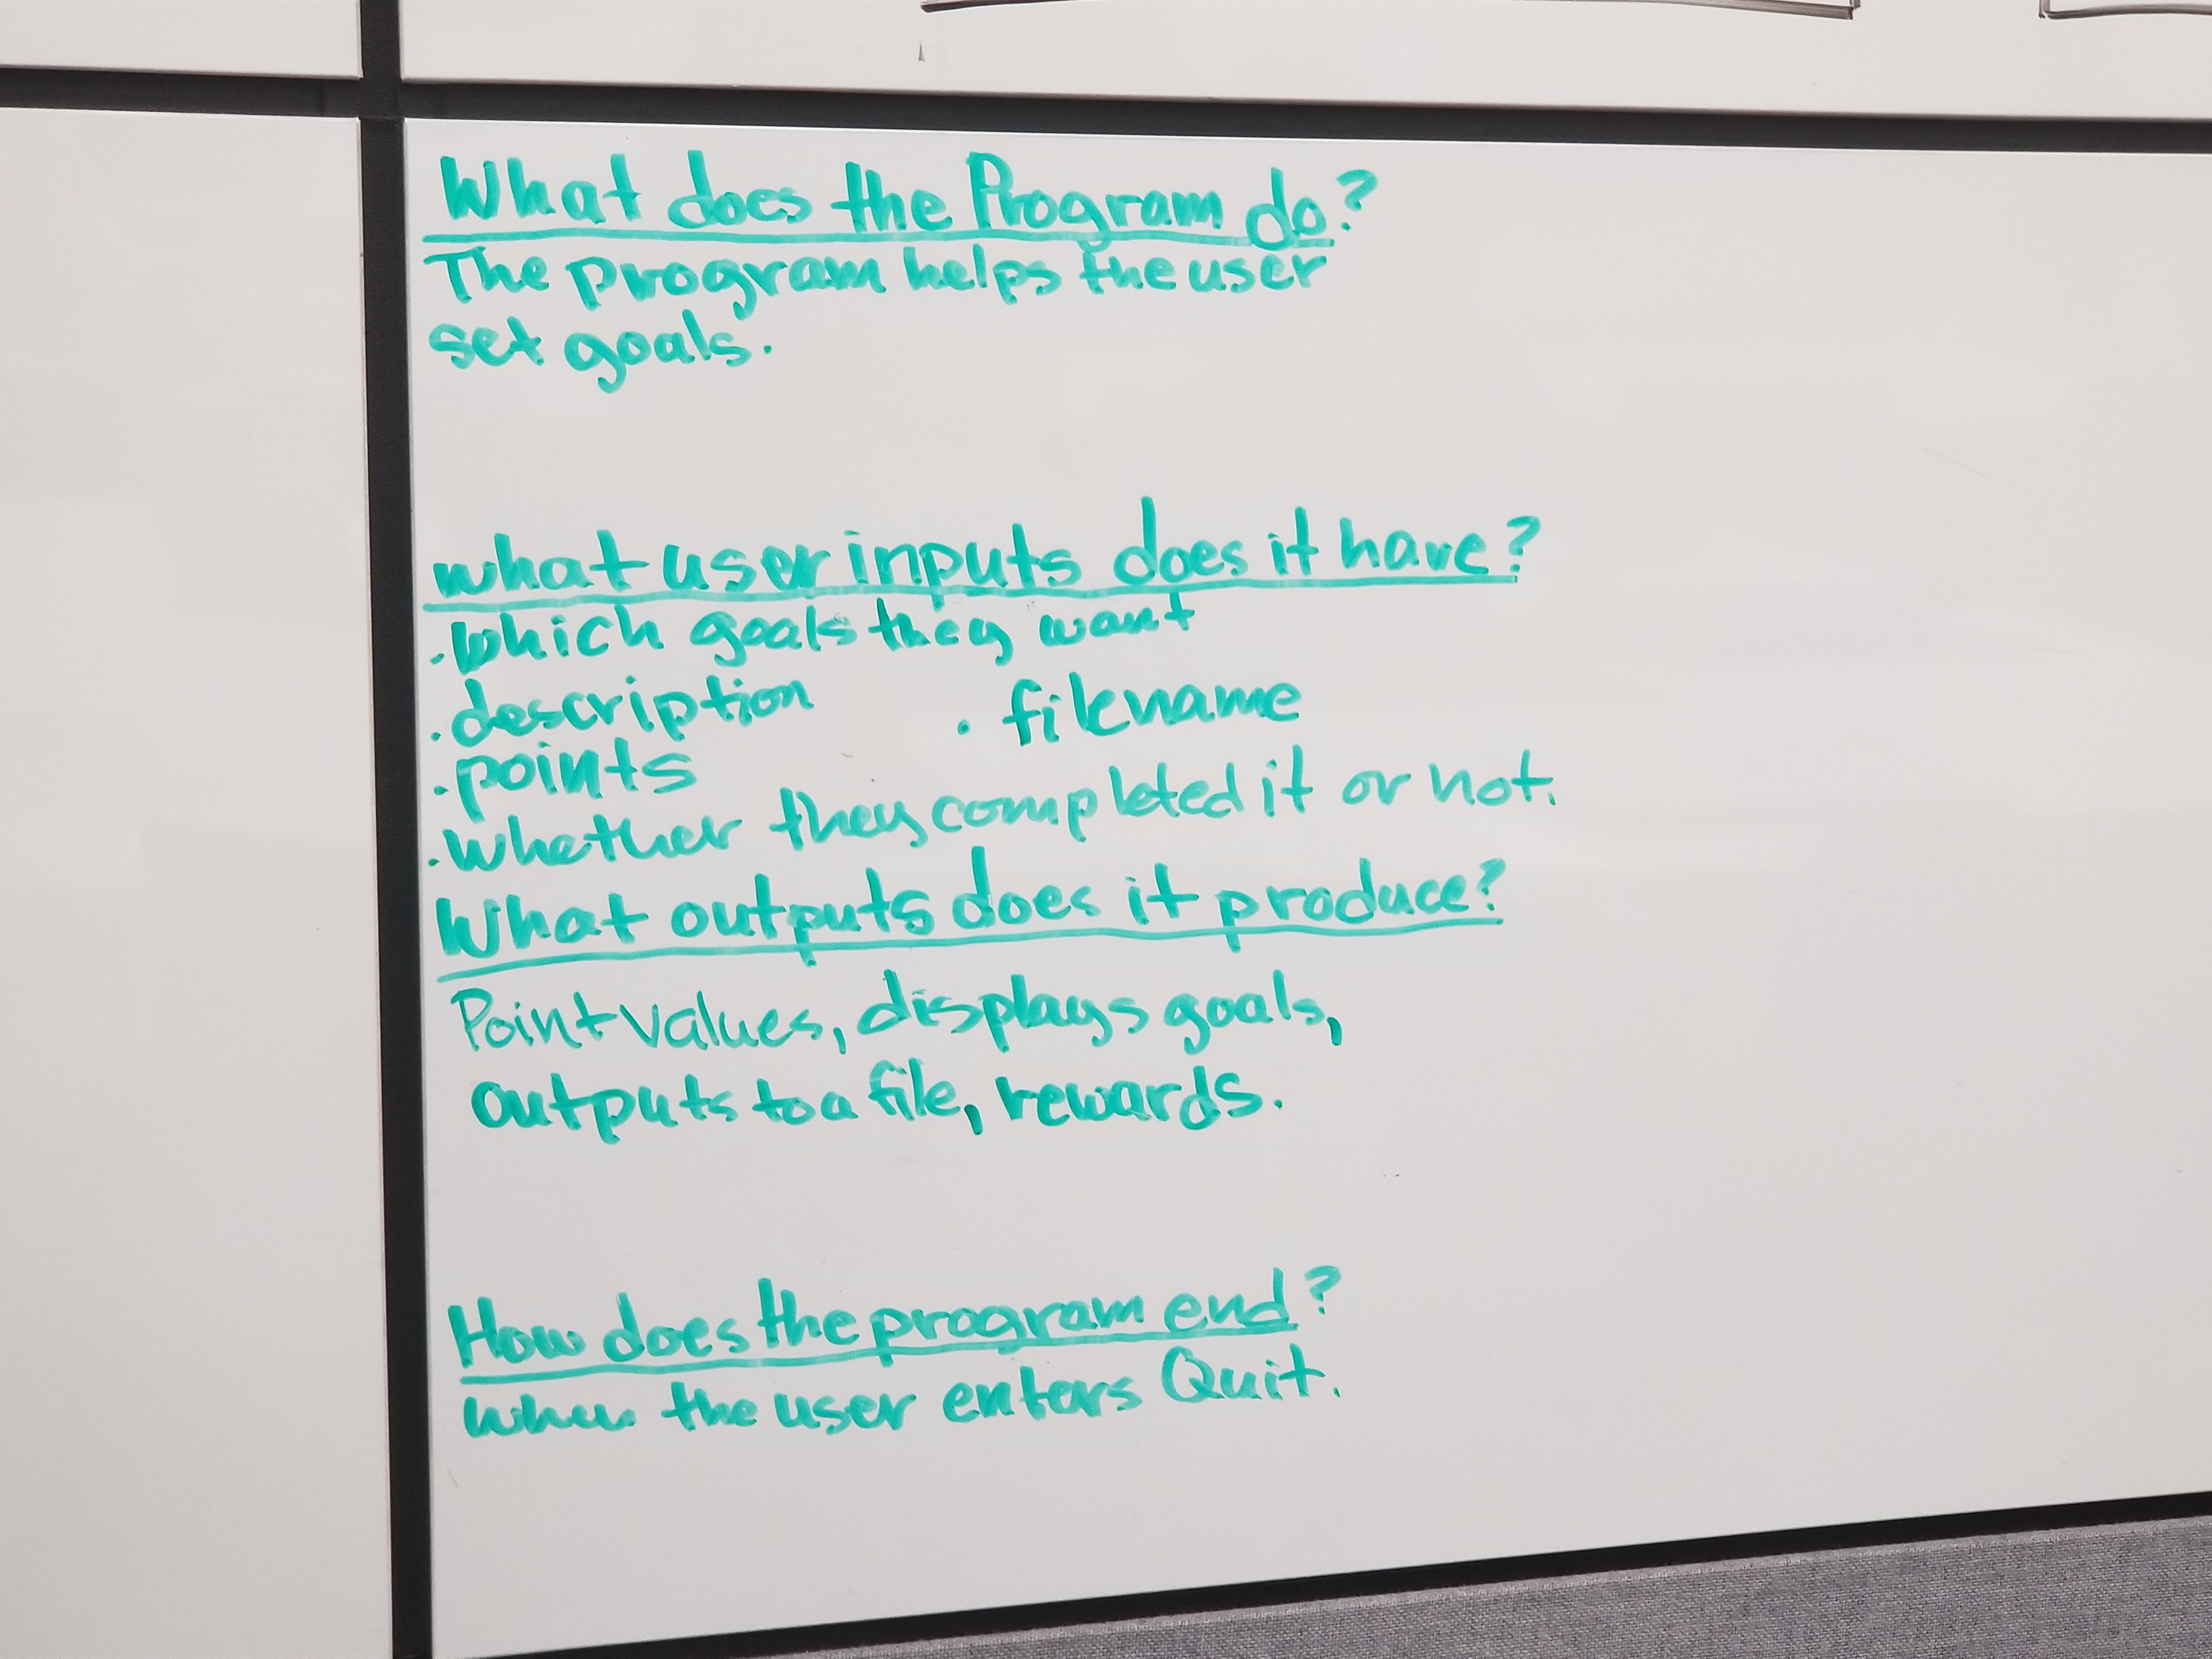 What does the Program do?
The program helps the user
set goals.
what user inputs does it have?
. Which goals they want
. description
. filename
. points
. Whether they completed it or not.
What outputs does it produce?
Point values, displays goals,
outputs to a file, rewards.
How does the program end?
When the user enters Quit.